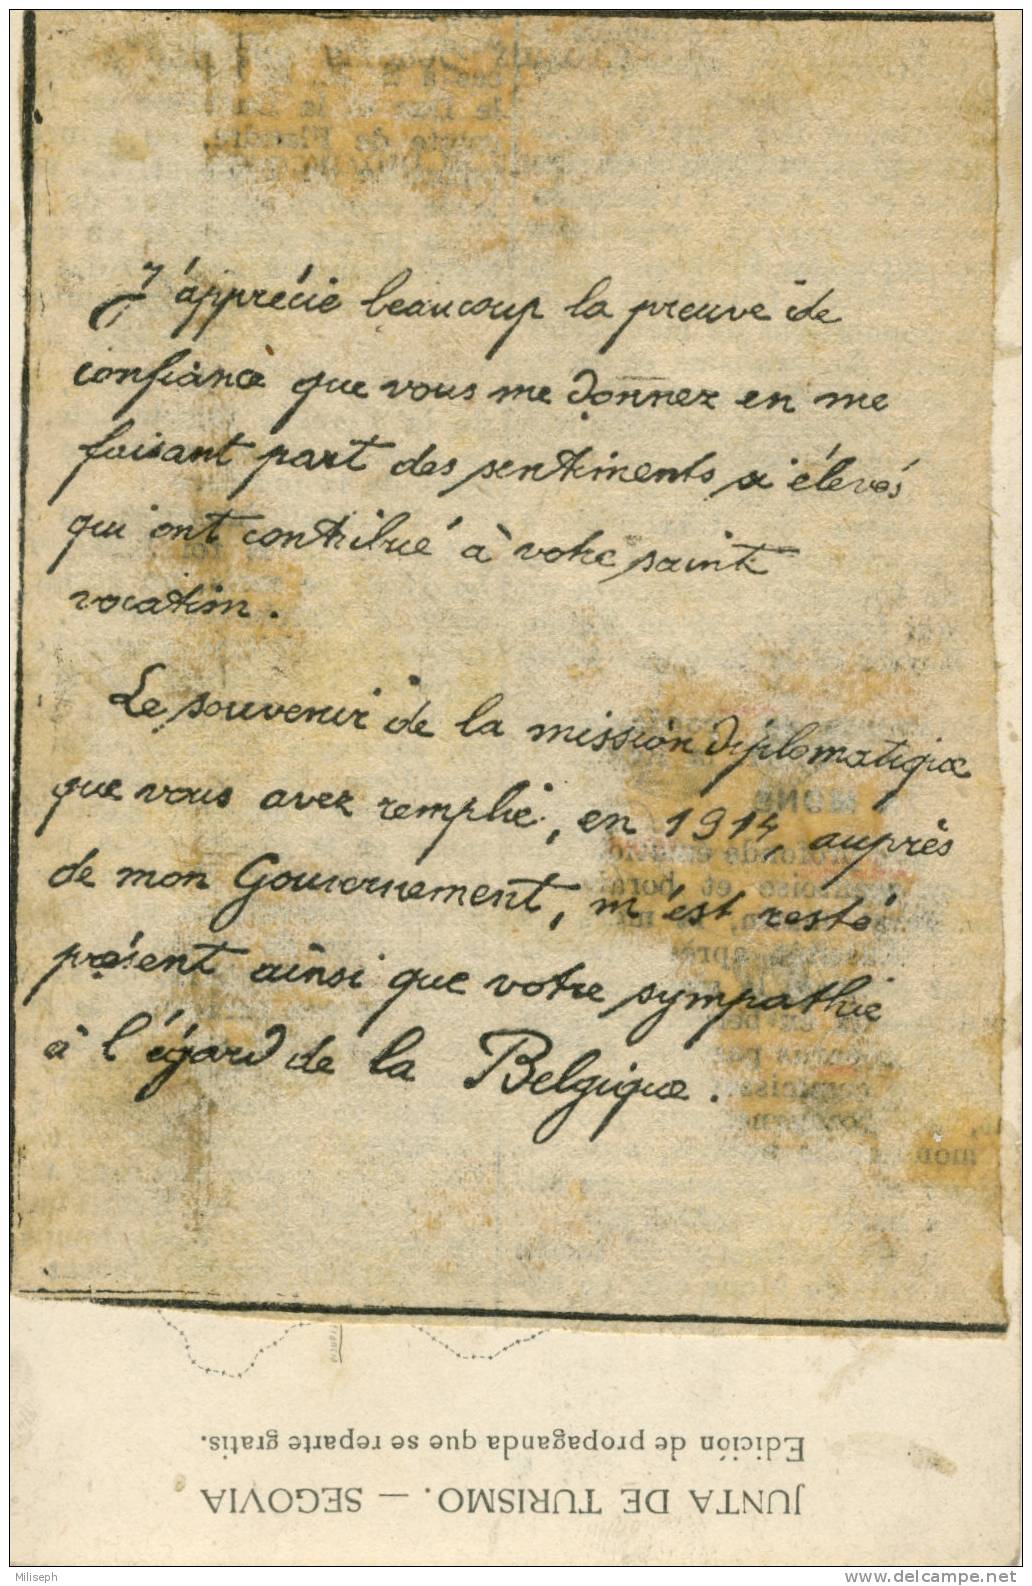 J'apprécie beaucoup la preuve de
confiance que vous me donnez en me
faisant part des sentiments si élevés
qui ont contribué à votre sainte
vocation.
Le souvenir de la mission diplomatique
que vous avez remplie, en 1914, auprès
de mon Gouvernement, m'est resté
présent ainsi que votre sympathie
à l'égard de la Belgique.
Edición de propaganda que se reparte gratis.
JUNTA DE TURISMO. — SEGOVIA
Miliseph
www.delcampe.net